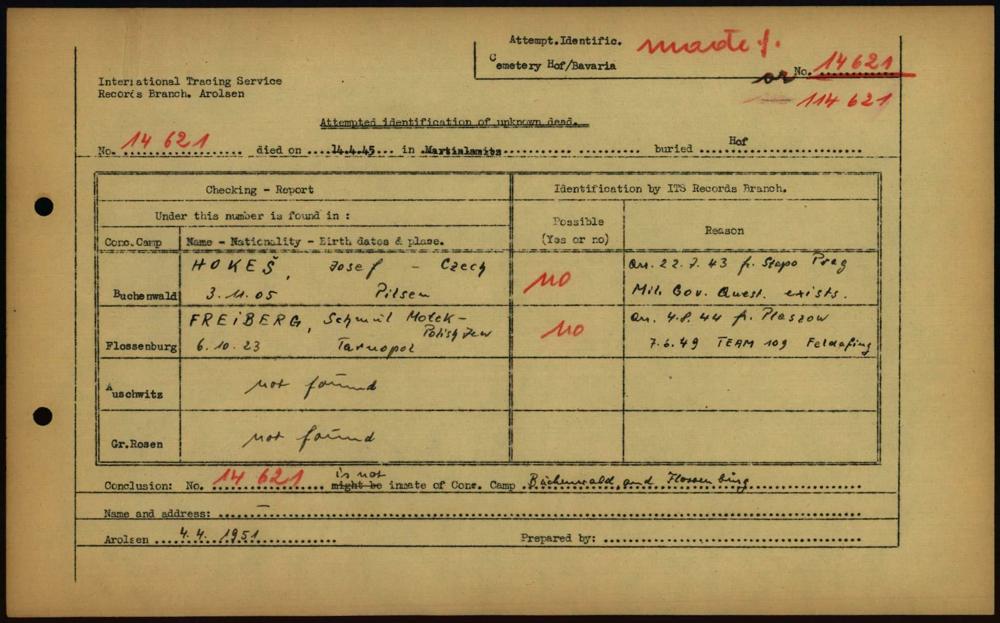 Attempt.Identific. made f.
Cemetery Hof/Bavaria
or No. 14621
114 621
International Tracing Service
Records Branch. Arolsen
Attempted identification of unknown dead.
No. 14 621 died on 14.4.45 in Martinlamitz buried Hof
Checking - Report Identification by ITS Records Branch.
Under this number is found in :
Possible (Yes or no) Reason
Conc.Camp Name - Nationality - Birth dates & place.
HOKEŠ, Josef - Czech
Buchenwald 3.11.05 Pilsen
no
arr. 22.7.43 fr. Stapo Prag
Mil. Gov. Quest. exists.
FREIBERG, Schmul Motek - Polish Jew
Flossenburg 6.10.23 Tarnopol
no
arr. 4.8.44 fr. Plaszow
7.6.49 TEAM 109 Feldafing
Auschwitz not found
Gr.Rosen not found
Conclusion: No. 14 621 is not might be inmate of Conc. Camp Buchenwald and Flossenburg
Name and address: —
Arolsen 4.4. 1951 Prepared by: